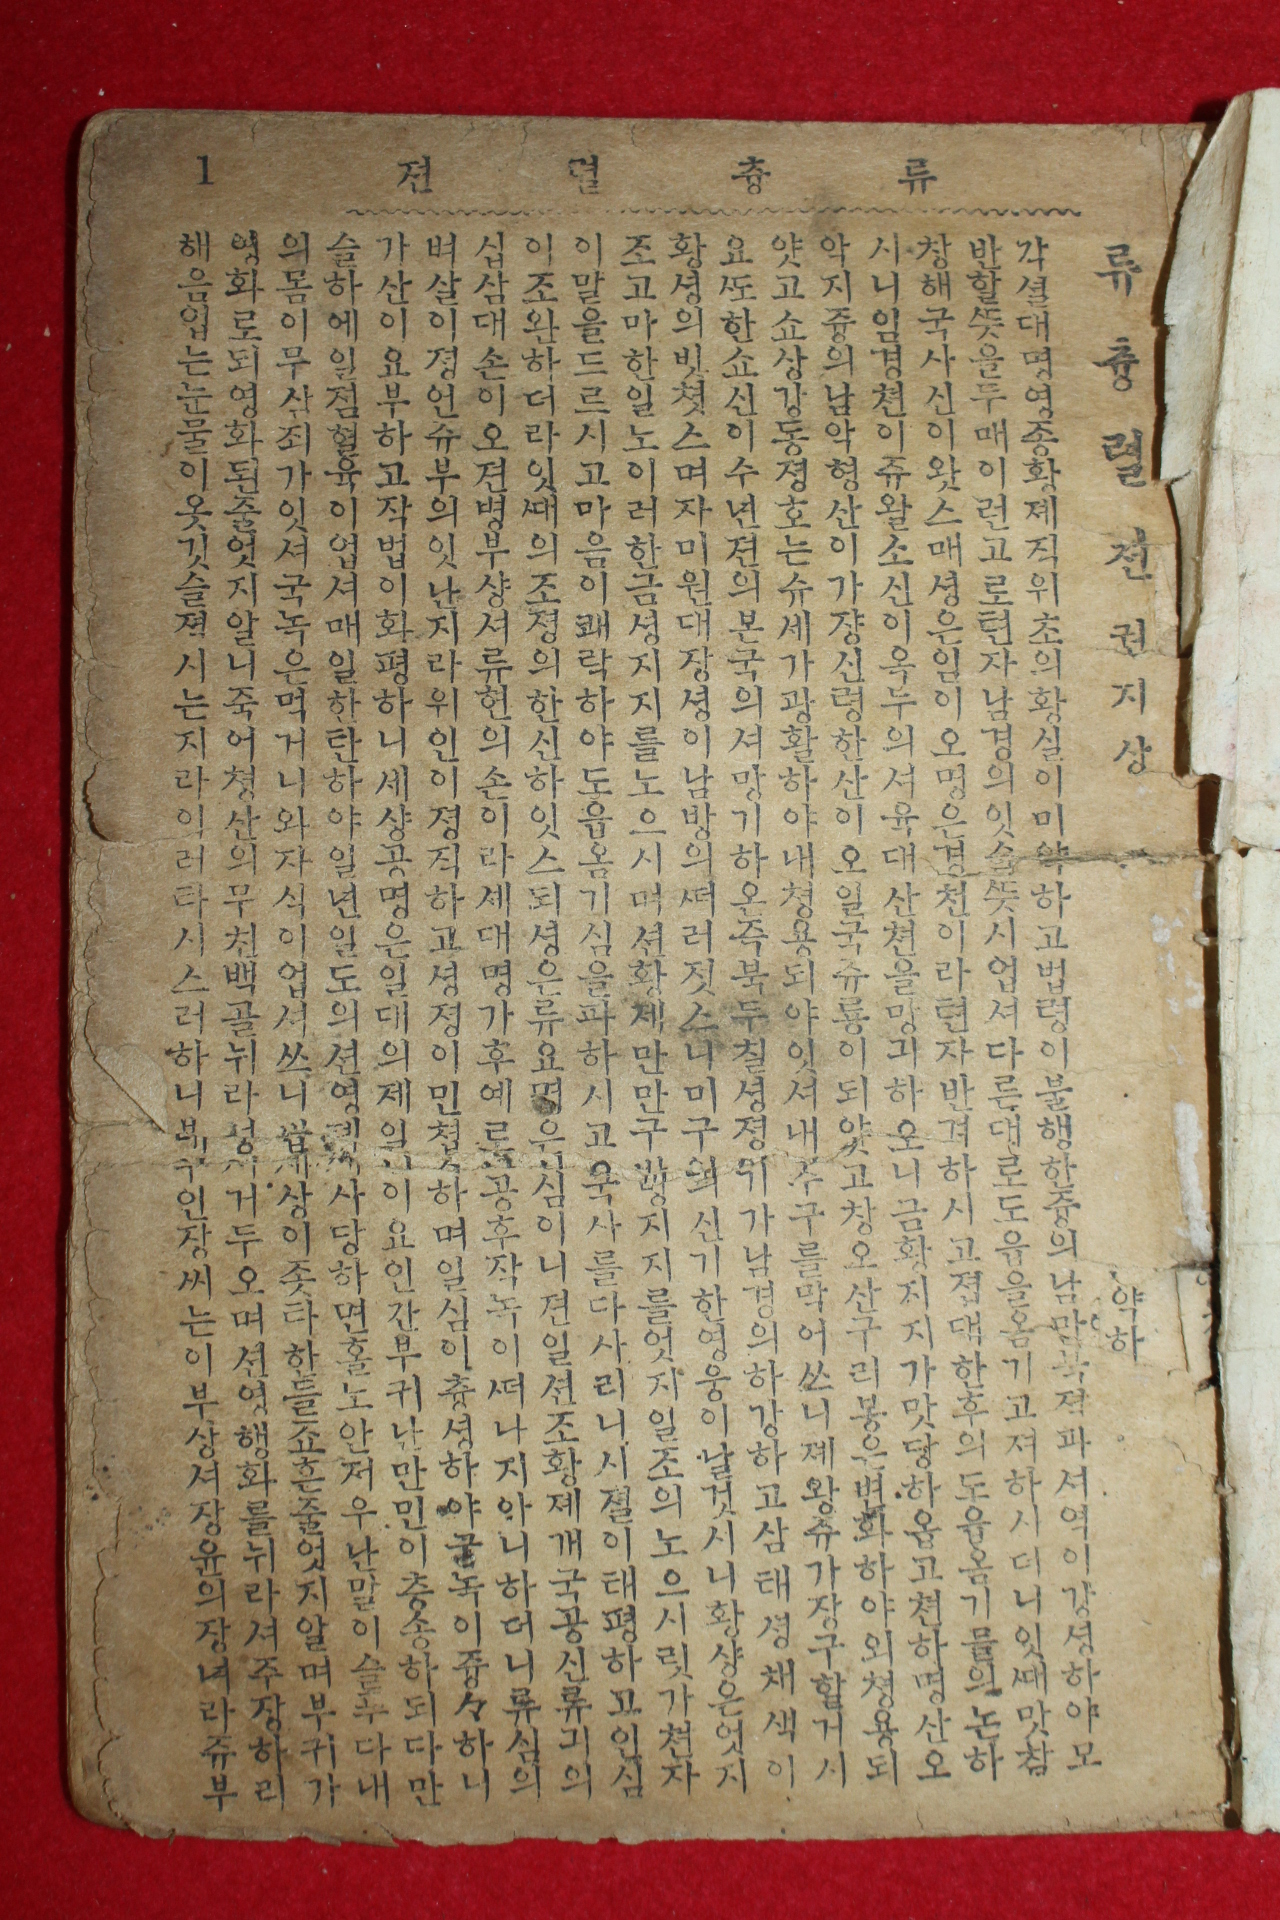 류츙렬젼 1
류츙렬젼권지상
각셜대명영종황졔직위초의황실이미약하고법령이불행한즁의남만북젹파셔역이강셩하야모
반할뜻을두매이런고로텬자남경의잇슬뜻시업셔다른대로도읍을옴기고져하시더니잇때맛참
창해국사신이왓스매셩은일이오명은경쳔이라텬자반겨하시고졉대한후의도읍옴기믈의논하
시니임경쳔이쥬왈소신이옥두의셔육대산쳔을망긔하오니금황지지가맛당하옵고쳔하명산오
악지즁의남악형산이가쟝신령한산이오일국쥬룡이되얏고창오산구리봉은변화하야외쳥용되
얏고쇼상강동졍호는슈세가광활하야내쳥용되야잇셔내수구를막어쓰니졔왕슈가장구할거시
요또한쇼신이수년젼의본국의셔망기하온즉북두칠셩졍긔가남경의하강하고삼태셩채색이
황셩의빗쳣스며자미원대장셩이남방의떠러짓스니미구의신기한영웅이날것시니황샹은엇지
조고마한일노이러한금셩지지를노으시며션황졔만만구방지지를엇지일조의노으시릿가쳔자
이말을드르시고마음이쾌락하야도읍옴기심을파하시고국사를다사리니시졀이태평하고인심
이조완하더라잇때의조졍의한신하잇스되셩은류요명은심이니젼일션조황졔개국공신류긔의
십삼대손이오젼병부샹셔류현의손이라셰대명가후예로공후작녹이떠나지아니하더니류심의
벼살이졍언쥬부의잇난지라위인이졍직하고셩졍이민첩하며일심이츙셩하야국녹이즁々하니
가산이요부하고작법이화평하니세샹공명은일대의졔일이요인간부귀난만민이층송하되다만
슬하에일졈혈육이업셔매일하탄하야일년일도의션영졔사당하면홀노안저우난말이슬푸다내
의몸이무산죄가잇셔국녹은먹거니와자식이업셔쓰니세상이죳타한들죠흔줄엇지알며부귀가
영화로되영화된줄엇지알니죽어쳥산의무친백골뉘라셔거두오며션영행화를뉘라셔주장하리
해음업는눈물이옷깃슬젹시는지라이러타시스러하니부인장씨는이부상셔장윤의장녀라쥬부
약하